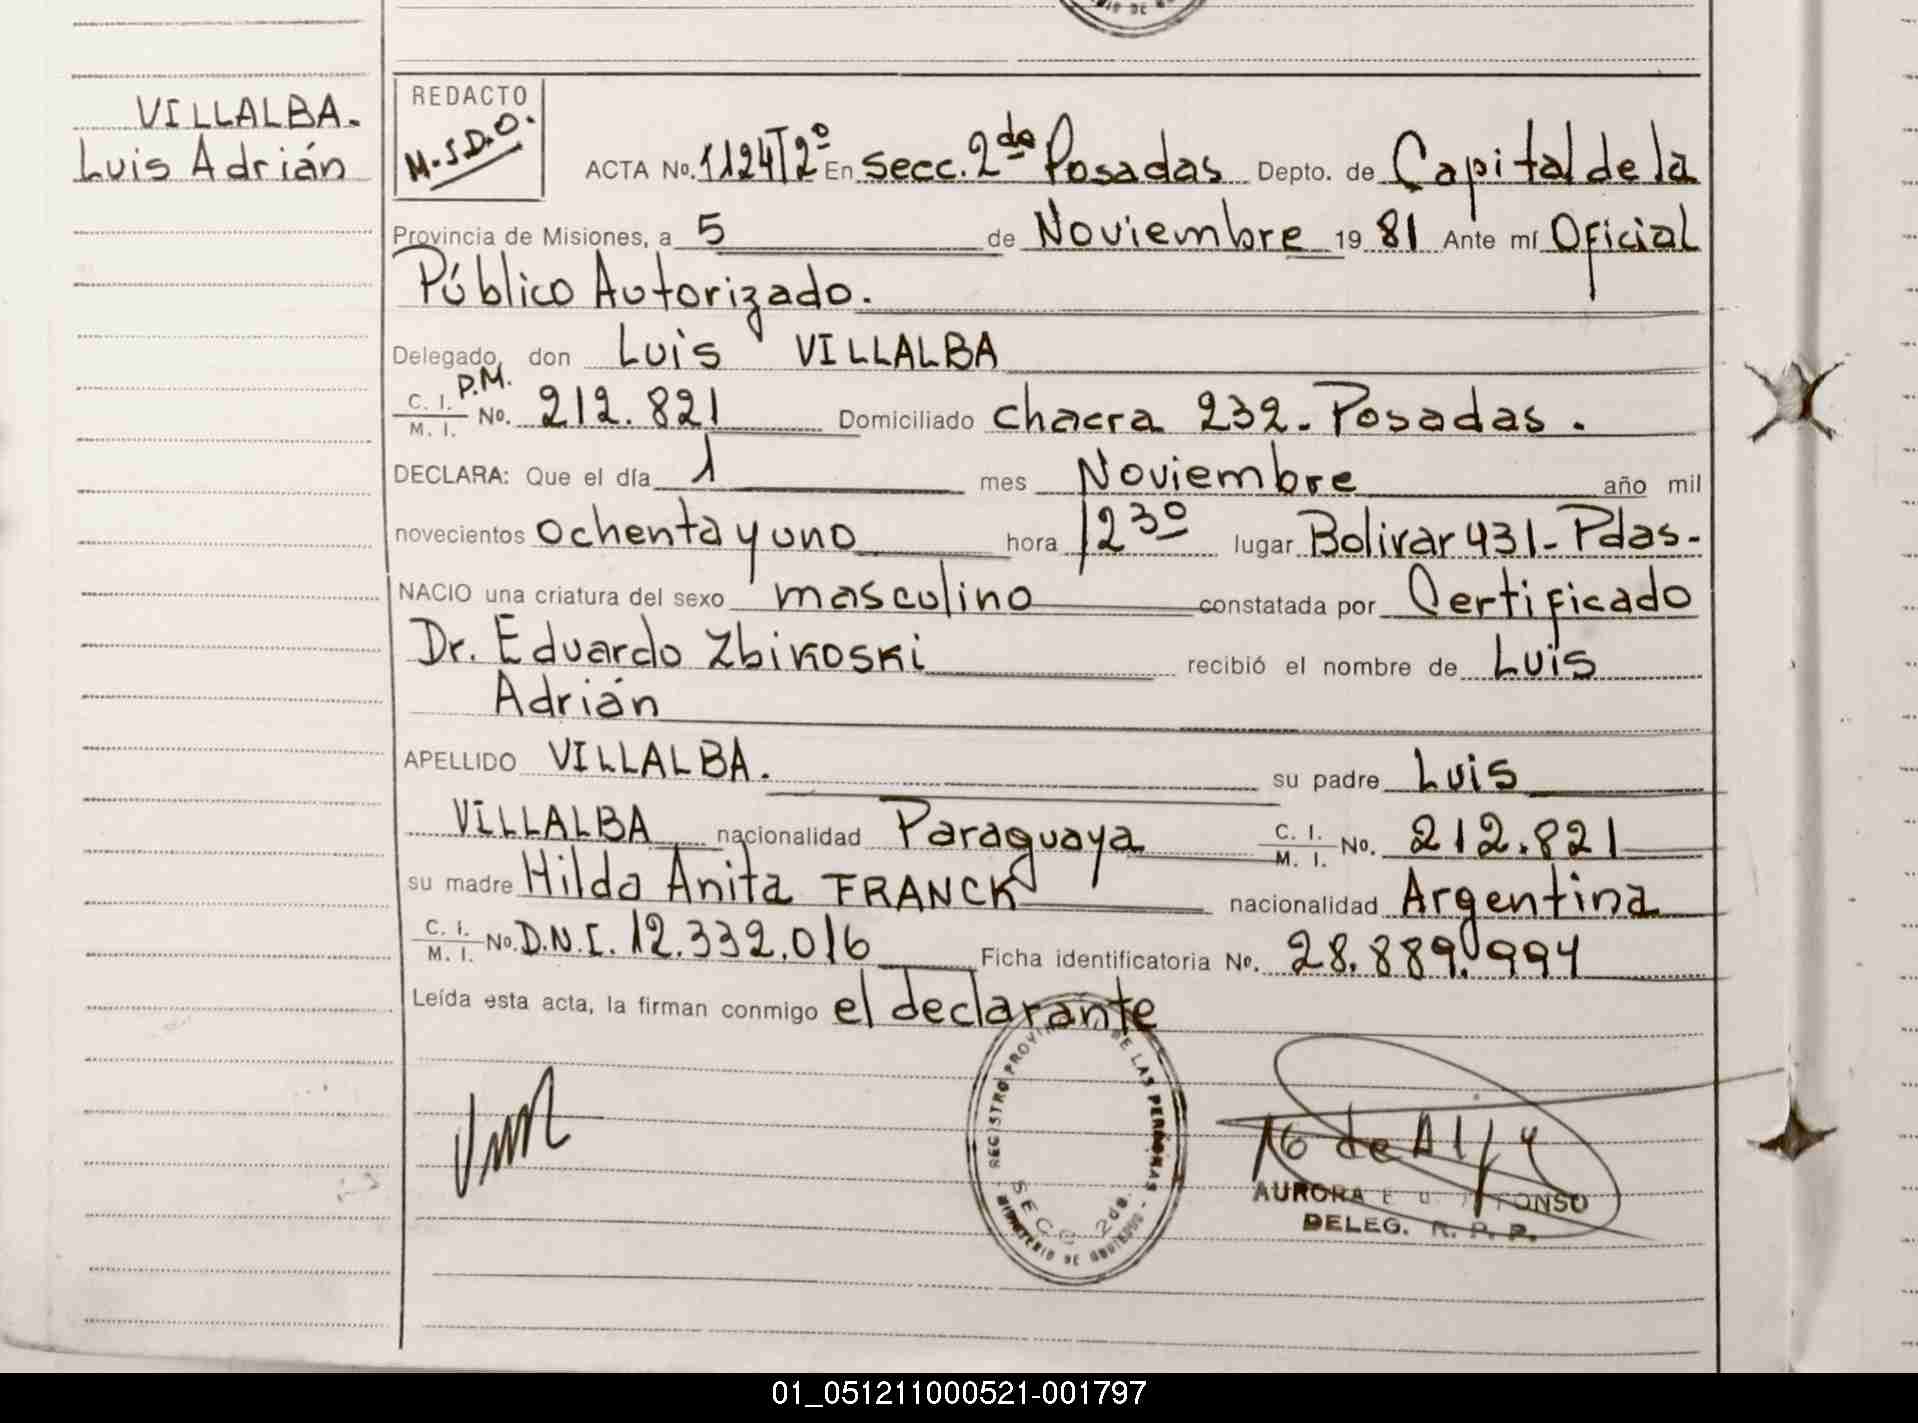 VILLALBA.
Luis Adrián
REDACTO
M.S.D.O.
ACTA No. 1124T2º En Secc. 2da Posadas Depto. de Capital de la
Provincia de Misiones, a 5 de Noviembre 19 81 Ante mí Oficial
Público Autorizado.
Delegado, don Luis VILLALBA
P.M.
C. I. / M. I. No. 212.821 Domiciliado chacra 232 - Posadas.
DECLARA: Que el día 1 mes Noviembre año mil
novecientos ochenta y uno hora 1230 lugar Bolivar 431 - Pdas -
NACIO una criatura del sexo masculino constatada por Certificado
Dr. Eduardo Zbikoski recibió el nombre de Luis
Adrián
APELLIDO VILLALBA. su padre Luis
VILLALBA nacionalidad Paraguaya C. I. / M. I. No. 212.821
su madre Hilda Anita FRANCK nacionalidad Argentina
C. I. / M. I. No. D.N.I. 12.332.016 Ficha identificatoria No. 28.889.994
Leída esta acta, la firman conmigo el declarante
REGISTRO PROVINCIAL DE LAS PERSONAS - MINISTERIO DE GOBIERNO -
SECC 2da.
AURORA
DELEG. R. P. P.
01_051211000521-001797